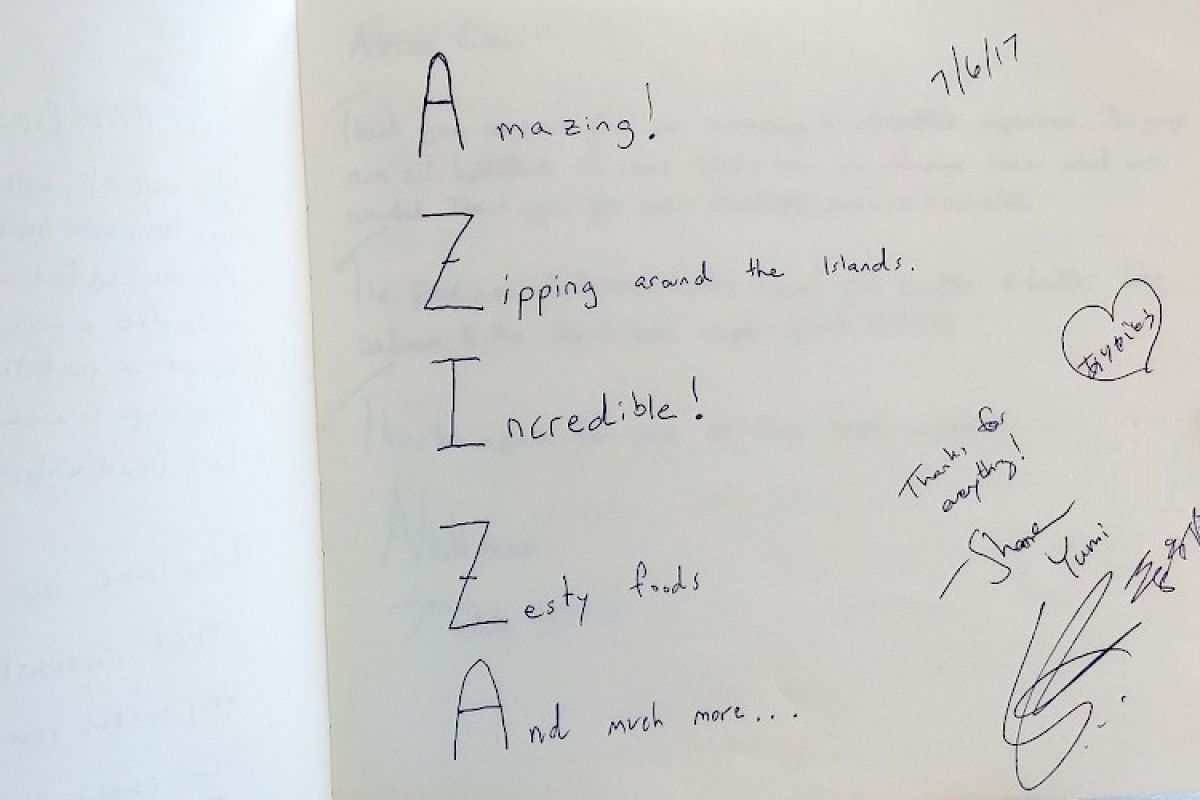 7/6/17
Amazing!
Zipping around the Islands.
Incredible!
Zesty foods
And much more...
Thanks for
everything!
- Shane
Yumi